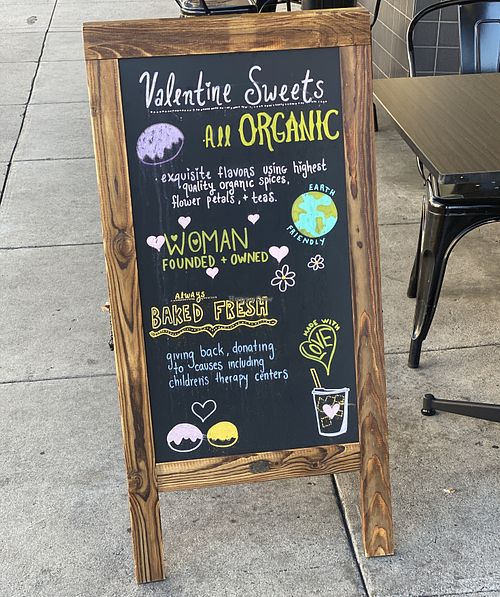 Valentine Sweets
All ORGANIC
• exquisite flavors using highest
quality organic spices,
flower petals, + teas.
EARTH
FRIENDLY
WOMAN
FOUNDED + OWNED
always
BAKED FRESH
MADE WITH
LOVE
giving back, donating
to causes including
childrens therapy centers